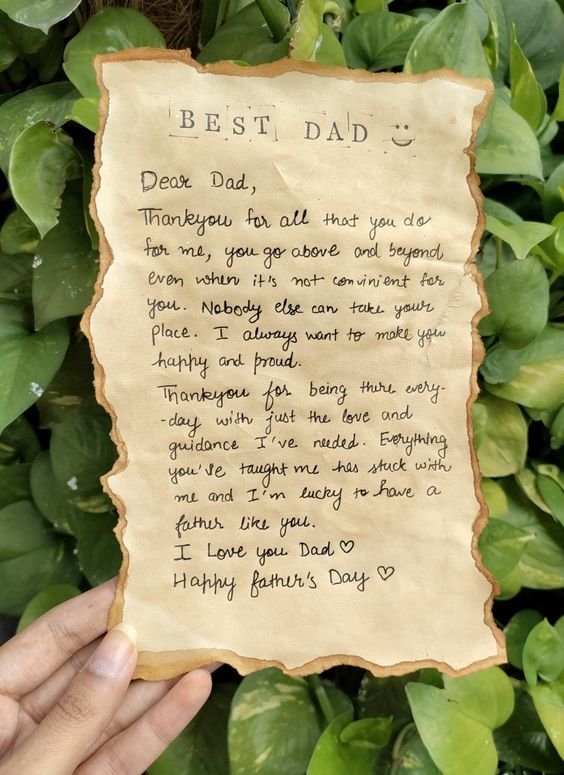 BEST DAD :)
Dear Dad,
Thankyou for all that you do
for me, you go above and beyond
even when it's not convinient for
you. Nobody else can take your
place. I always want to make you
happy and proud.
Thankyou for being there every-
-day with just the love and
guidance I've needed. Everything
you've taught me has stuck with
me and I'm lucky to have a
father like you.
I Love you Dad ♡
Happy father's Day ♡